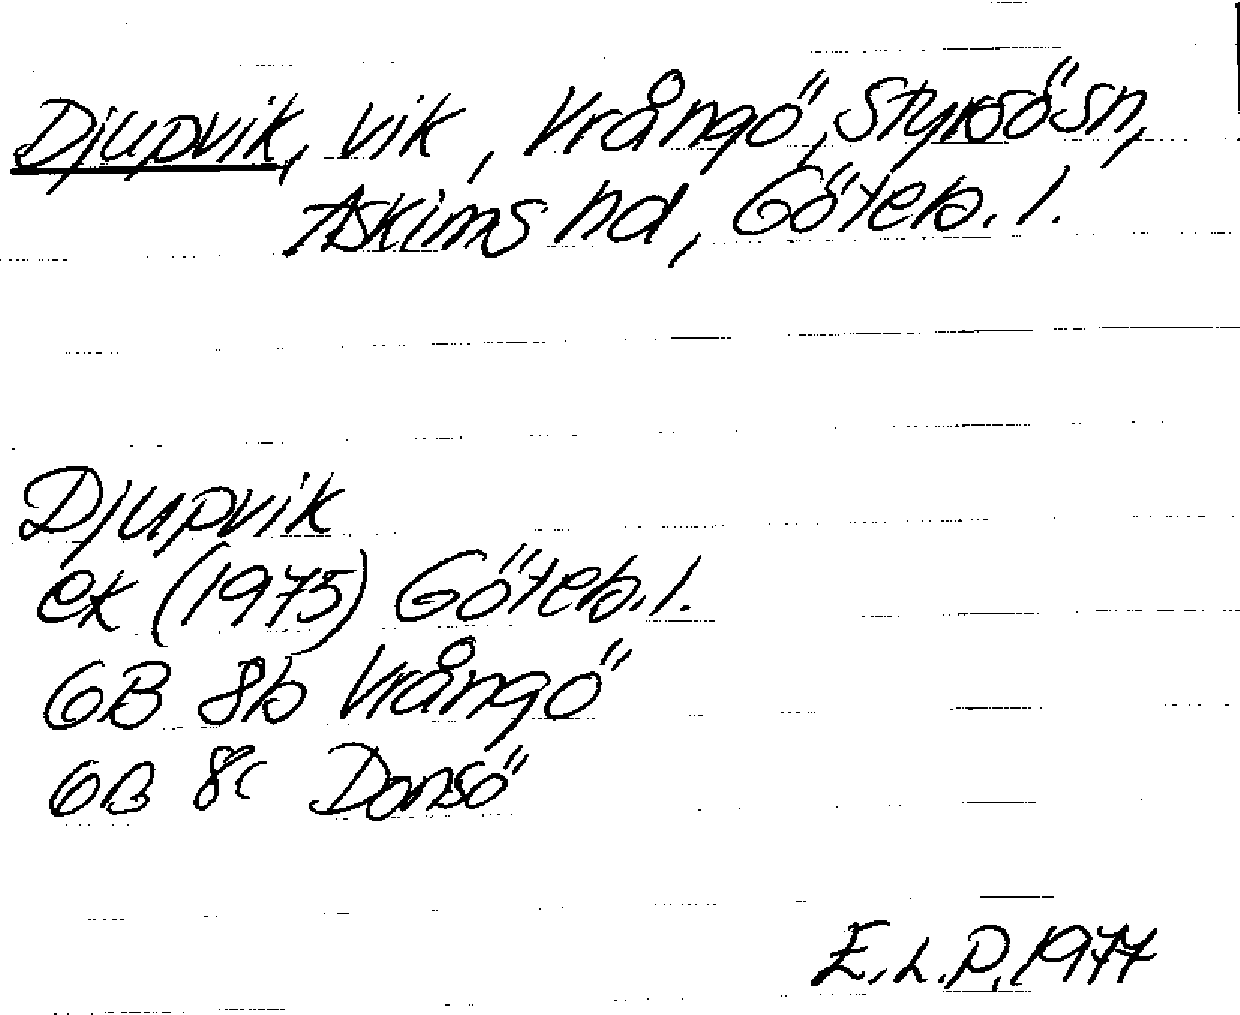 Djupvik, vik, Vrångö, Styrsö sn,
Askims hd, Göteb. l.
Djupvik
ek (1975) Göteb. l.
GB 8b Vrångö
GB 8c Donsö
E.L.P. 1977